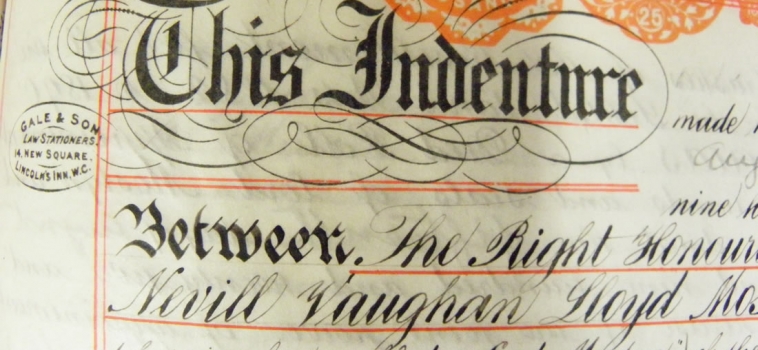 25
This Indenture
made
GALE & SON
LAW STATIONERS.
14, NEW SQUARE.
LINCOLN'S INN, W.C.
nine
Between. The Right Honour
Nevill Vaughan Lloyd Mos